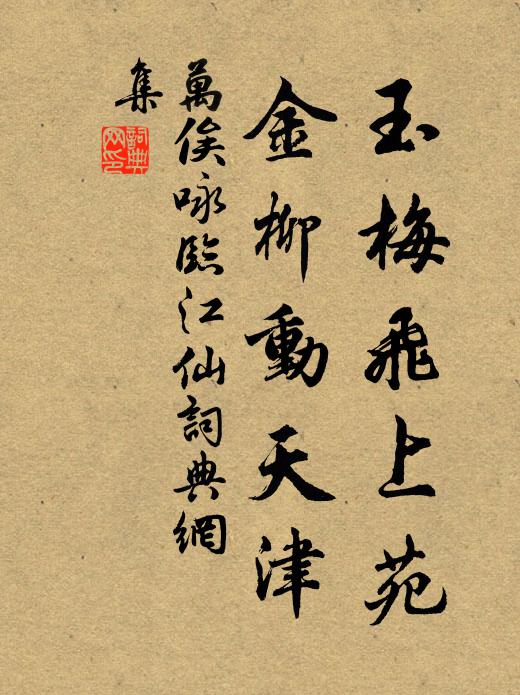 玉梅飛上苑
金柳動天津
萬俟咏臨江仙詞典網
集
詞典
网印